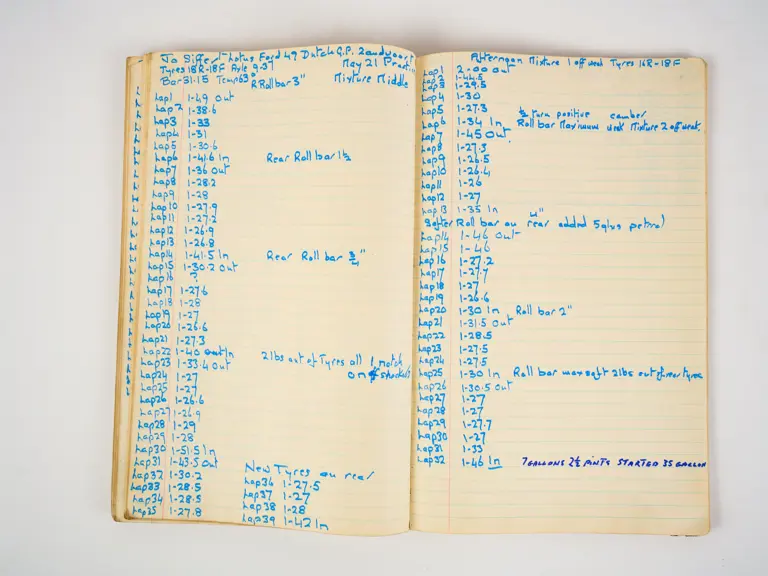 Jo Siffert Lotus Ford 49 Dutch G.P. Zandvoort
Tyres 18R-18F Axle 9-37 May 21 Pract...
Bar 31.15 Temp 63° R Rollbar 3" Mixture Middle
Lap1 1-49 Out
Lap2 1-38.6
Lap3 1-33
Lap4 1-31
Lap5 1-30.6
Lap6 1-41.6 In Rear Roll bar 1½
Lap7 1-36 Out
Lap8 1-28.2
Lap9 1-28
Lap10 1-27.9
Lap11 1-27.2
Lap12 1-26.9
Lap13 1-26.8
Lap14 1-41.5 In Rear Roll bar ¾"
Lap15 1-30.2 Out
Lap16 ?
Lap17 1-27.6
Lap18 1-28
Lap19 1-27
Lap20 1-26.6
Lap21 1-27.3
Lap22 1-40 In
Lap23 1-33.4 Out 2lbs out of Tyres all 1 notch
Lap24 1-27 on shocks
Lap25 1-27
Lap26 1-26.6
Lap27 1-26.9
Lap28 1-29
Lap29 1-28
Lap30 1-51.5 In
Lap31 1-43.5 Out
Lap32 1-30.2
Lap33 1-28.5
Lap34 1-28.5
Lap35 1-27.8
New Tyres on rear
Lap36 1-27.5
Lap37 1-27
Lap38 1-28
Lap39 1-42 In
Afternoon Mixture 1 off weak Tyres 16R-18F
Lap1 2-00 Out
Lap2 1-44.5
Lap3 1-29.5
Lap4 1-30
Lap5 1-27.3 ½ turn positive camber
Lap6 1-34 In Roll bar Maximum weak Mixture 2 off weak
Lap7 1-45 Out
Lap8 1-27.3
Lap9 1-26.5
Lap10 1-26.4
Lap11 1-26
Lap12 1-27
Lap13 1-35 In
Roll bar on rear added 5glns petrol
Lap14 1-46 Out
Lap15 1-46
Lap16 1-27.2
Lap17 1-27.7
Lap18 1-27
Lap19 1-26.6
Lap20 1-30 In Roll bar 2"
Lap21 1-31.5 Out
Lap22 1-28.5
Lap23 1-27.5
Lap24 1-27.5
Lap25 1-30 In Roll bar 2lbs out of rear tyres
Lap26 1-30.5 Out
Lap27 1-27
Lap28 1-27
Lap29 1-27.7
Lap30 1-27
Lap31 1-33
Lap32 1-46 In 7 GALLONS 2½ PINTS STARTED 35 GALLON